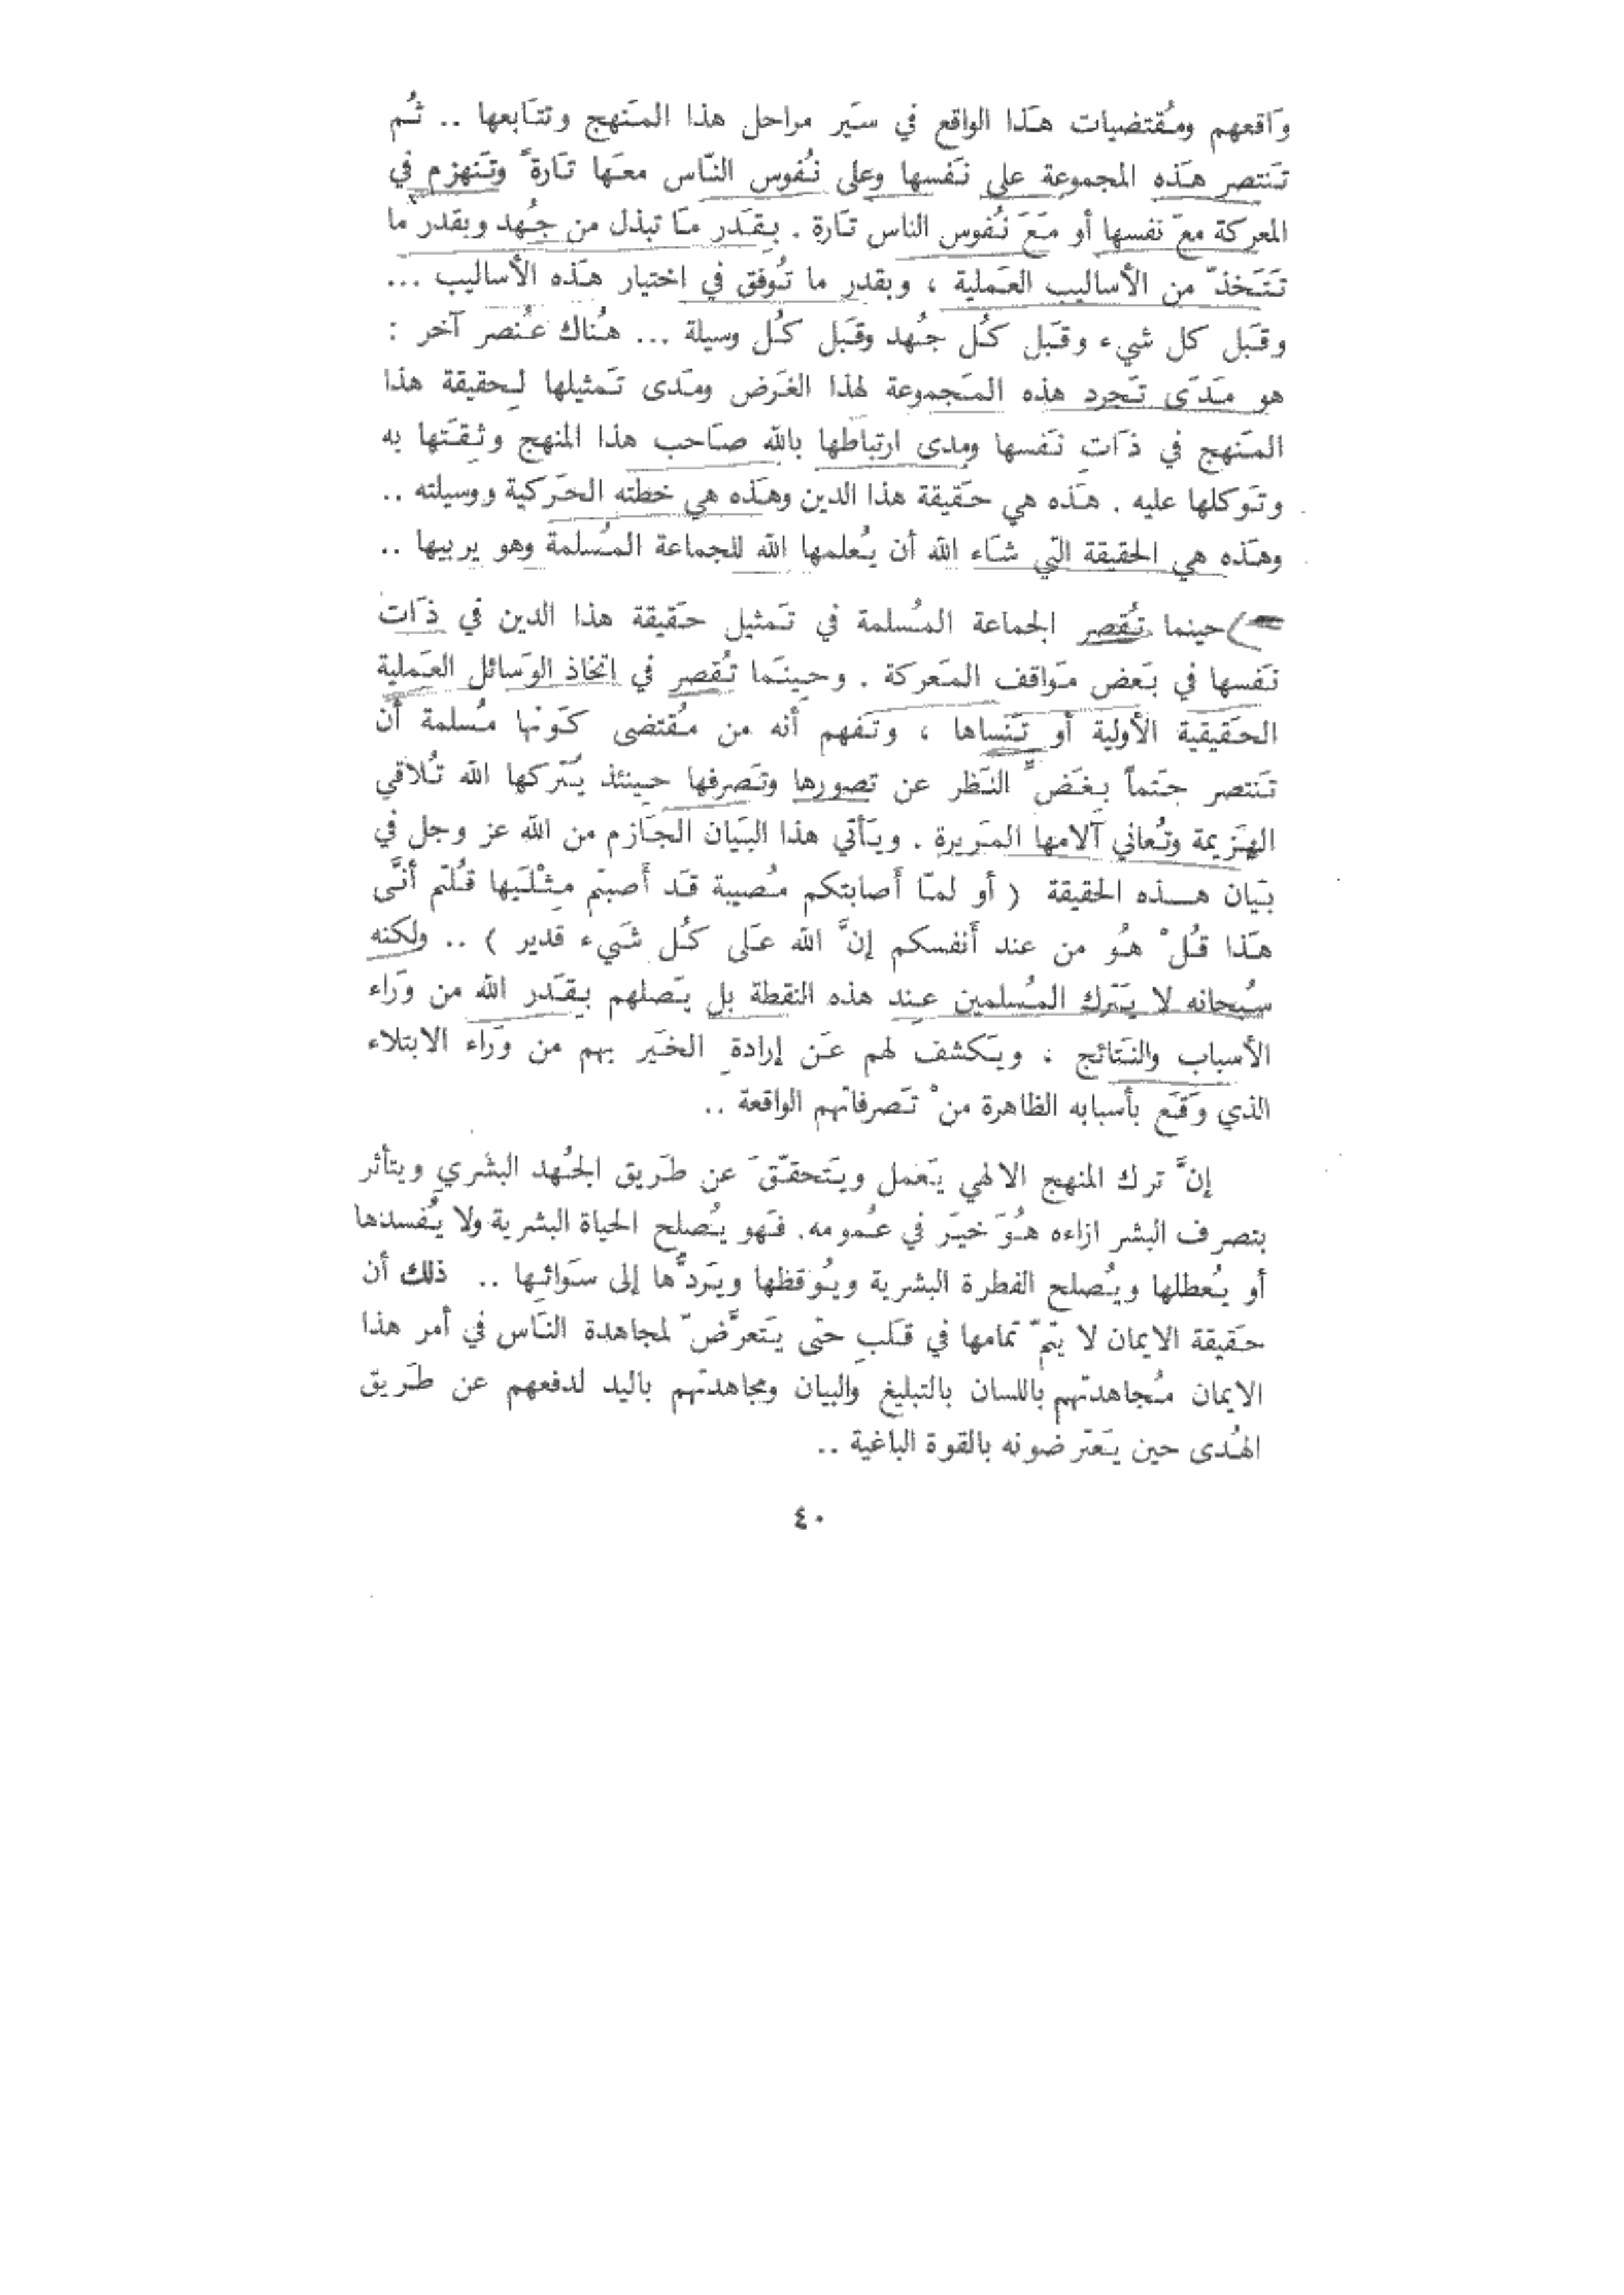 وَاقعهم ومُقتضيات هَذا الواقع في سَير مراحل هذا المَنهج وتتَابعها .. ثُم
تَنتصر هَذه المجموعة على نَفسها وعلى نُفوس النّاس معَها تَارة ً وتَنهزم في
المعركة معَ نفسها أو مَعَ نُفوس الناس تَارة . بِقَدر مَا تبذل من جُهد وبقدر ما
تَتَخذّ من الأساليب العَملية ، وبقدر ما تُوفق في اختيار هَذه الأساليب ...
وقَبل كل شيء وقَبل كُل جُهد وقَبل كُل وسيلة ... هُناك عُنصر آخر :
هو مَدَى تَجرد هذه المَجموعة لهذا الغَرض ومَدى تَمثيلها لِحقيقة هذا
المَنهج في ذَاتِ نَفسها ومدى ارتباطها بالله صَاحب هذا المنهج وثِقَتها به
وتَوكلها عليه . هَذه هي حَقيقة هذا الدين وهَذه هي خطته الحَركية ووسيلته ..
وهَذه هي الحقيقة التي شَاء الله أن يُعلمها الله للجماعة المُسلمة وهو يربيها ..
حينما تُقصر الجماعة المُسلمة في تَمثيل حَقيقة هذا الدين في ذَات
نفَسها في بَعض مَواقف المَعركة . وحِينَما تُقصر في اتخاذ الوَسائل العَملية
الحَقيقية الأولية أو تَنساها ، وتَفهم أنه من مُقتضى كَونها مُسلمة أن
تَنتصر حَتماً بِغَضّ النَظر عن تصورها وتَصرفها حينئذ يَتركها الله تُلاقي
الهَزيمة وتُعاني آلامها المَريرة . ويَأتي هذا البَيان الجَازم من الله عز وجل في
بَيان هـذه الحقيقة ( أو لمّا أصابتكم مُصيبة قَد أَصبتم مِثْلَيها قُلتم أنَّى
هَذا قُل ْ هُو من عند أَنفسكم إن َّ الله عَلى كُل شَيء قَدير ) .. ولكنه
سُبحانه لا يَترك المُسلمين عِند هذه النقطة بل يَصلهم بِقَدر الله من وَراء
الأسباب والنَتائج ، ويَكشف لهم عَن إرادةِ الخَير بهم من وَراء الابتلاء
الذي وَقَع بأسبابه الظاهرة من ْ تَصرفاتهم الواقعة ..
إن َّ ترك المنهج الالهي يَعمل ويَتحقّق َ عن طَريق الجُهد البشَري ويتأثر
بتصرف البشر ازاءه هُوَ خيَر في عُمومه. فَهو يُصلح الحياة البشرية ولا يُفسدها
أو يُعطلها ويُصلح الفطرة البشرية ويُوقظها ويَردُّها إلى سَوائِها .. ذلك أن
حَقيقة الايمان لا يَتمّ تمامها في قَلبِ حتى يَتعرَّضّ لمجاهدة النَاس في أمر هذا
الايمان مُجاهدتهم باللسان بالتبليغ والبيان ومجاهدتهم باليد لدفعهم عن طَريق
الهُدى حين يَعترضونه بالقوة الباغية ..
٤٠